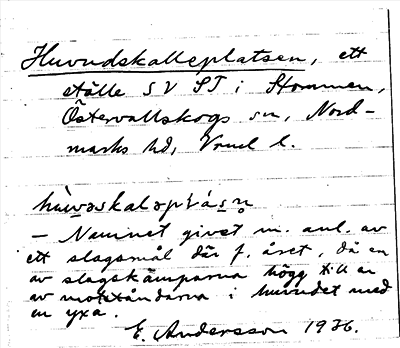 Huvudskalleplatsen, ett
ställe SV ST i Stommen,
Östervallskogs sn, Nord-
marks hd, Vrml l.
— Namnet givet m. anl. av
ett slagsmål där f. året, då en
av slagskämparna högg till en
av motståndarna i huvudet med
en yxa.
E. Andersson 1936.